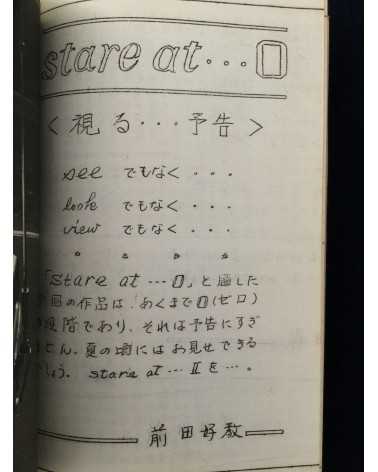 stare at・・・0
＜視る・・・予告＞
see でもなく・・・
look でもなく・・・
view でもなく・・・
「stare at…0」と題した
回の作品は、あくまで0(ゼロ)
段階であり、それは予告にすぎ
せん。夏の頃にはお見せできる
しょう。stare at…Ⅱを…。
前田好教